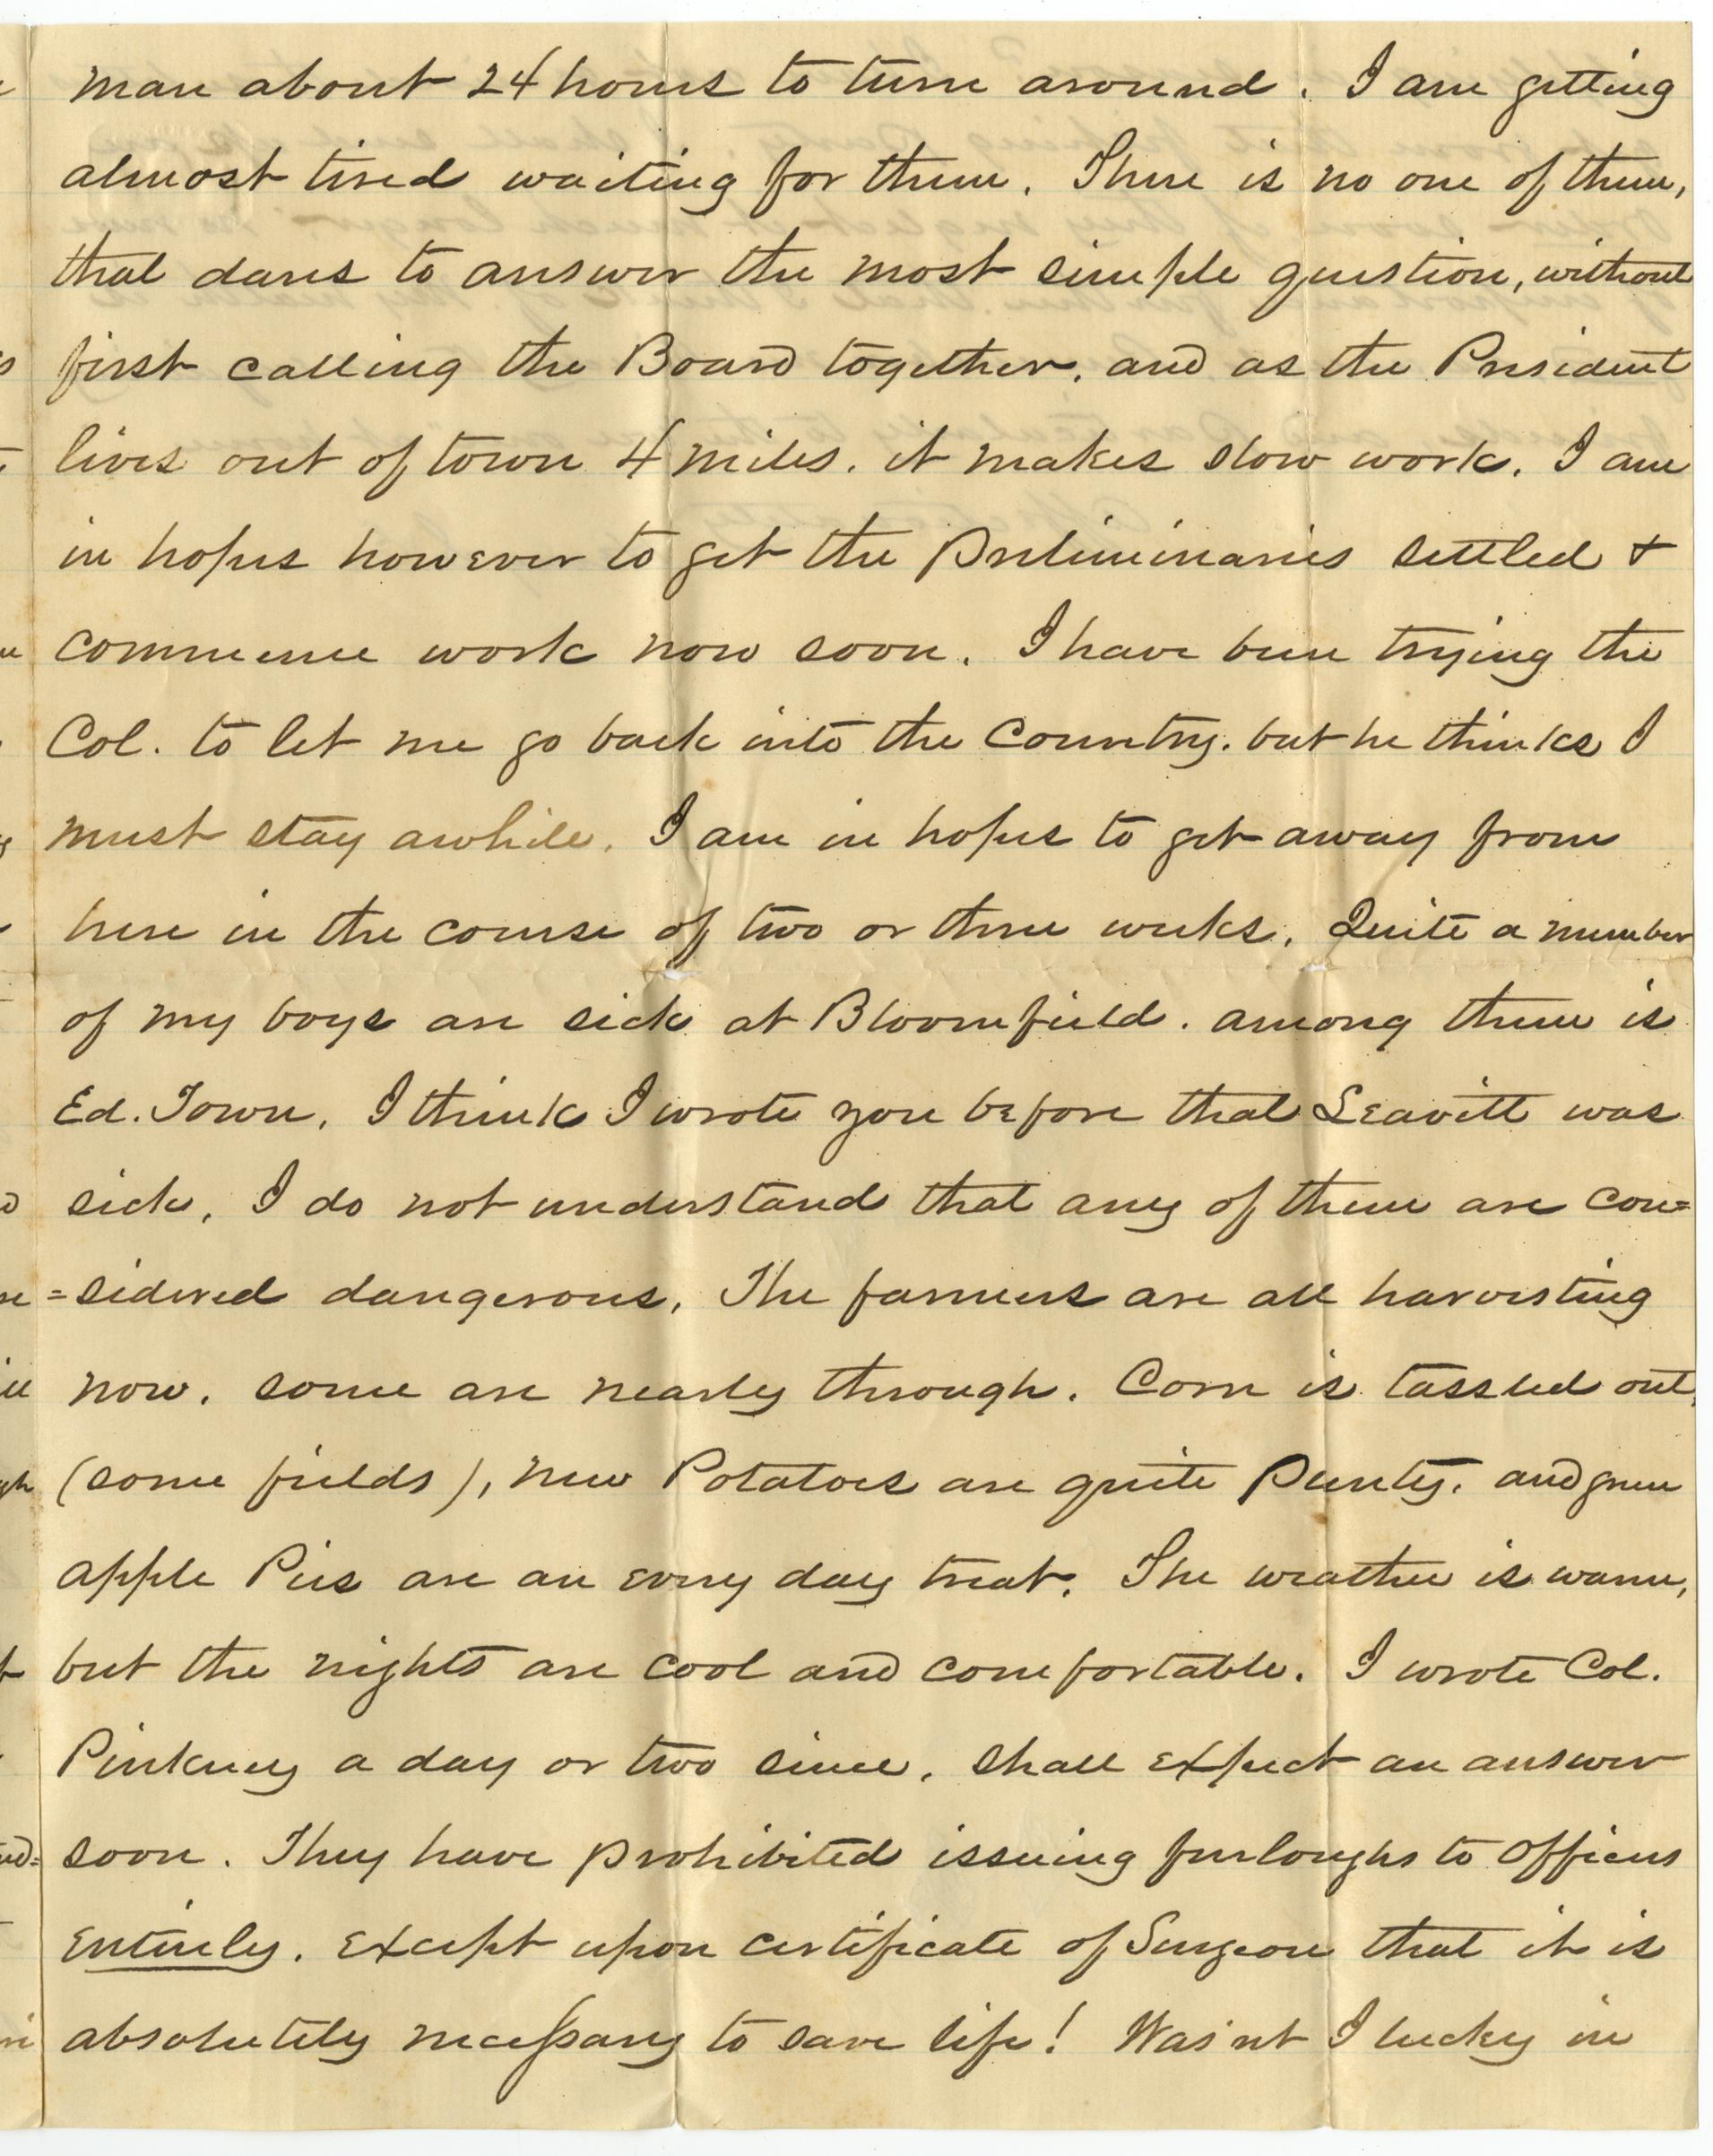 man about 24 hours to turn around. I am getting
almost tired waiting for them. There is no one of them,
that dares to answer the most simple question, without
first calling the Board together, and as the President
lives out of town 4 miles. it makes slow work. I am
in hopes however to get the Preliminaries settled &
commence work now soon. I have been trying the
Col. to let me go back into the Country. but he thinks I
must stay awhile. I am in hopes to get away from
here in the course of two or three weeks. Quite a number
of my boys are sick at Bloomfield. among them is
Ed. Town. I think I wrote you before that Leavitt was
sick. I do not understand that any of them are con=
=sidered dangerous. The farmers are all harvesting
now. some are nearly through. Corn is tassled out,
(some fields), new Potatoes are quite Plenty. and green
apple Pies are an every day treat. The weather is warm,
but the nights are cool and comfortable. I wrote Col.
Pinkney a day or two since. shall expect an answer
soon. They have prohibited issuing furloughs to officers
entirely. except upon certificate of Surgeon that it is
absolutely necessary to save life! Wasnt I lucky in